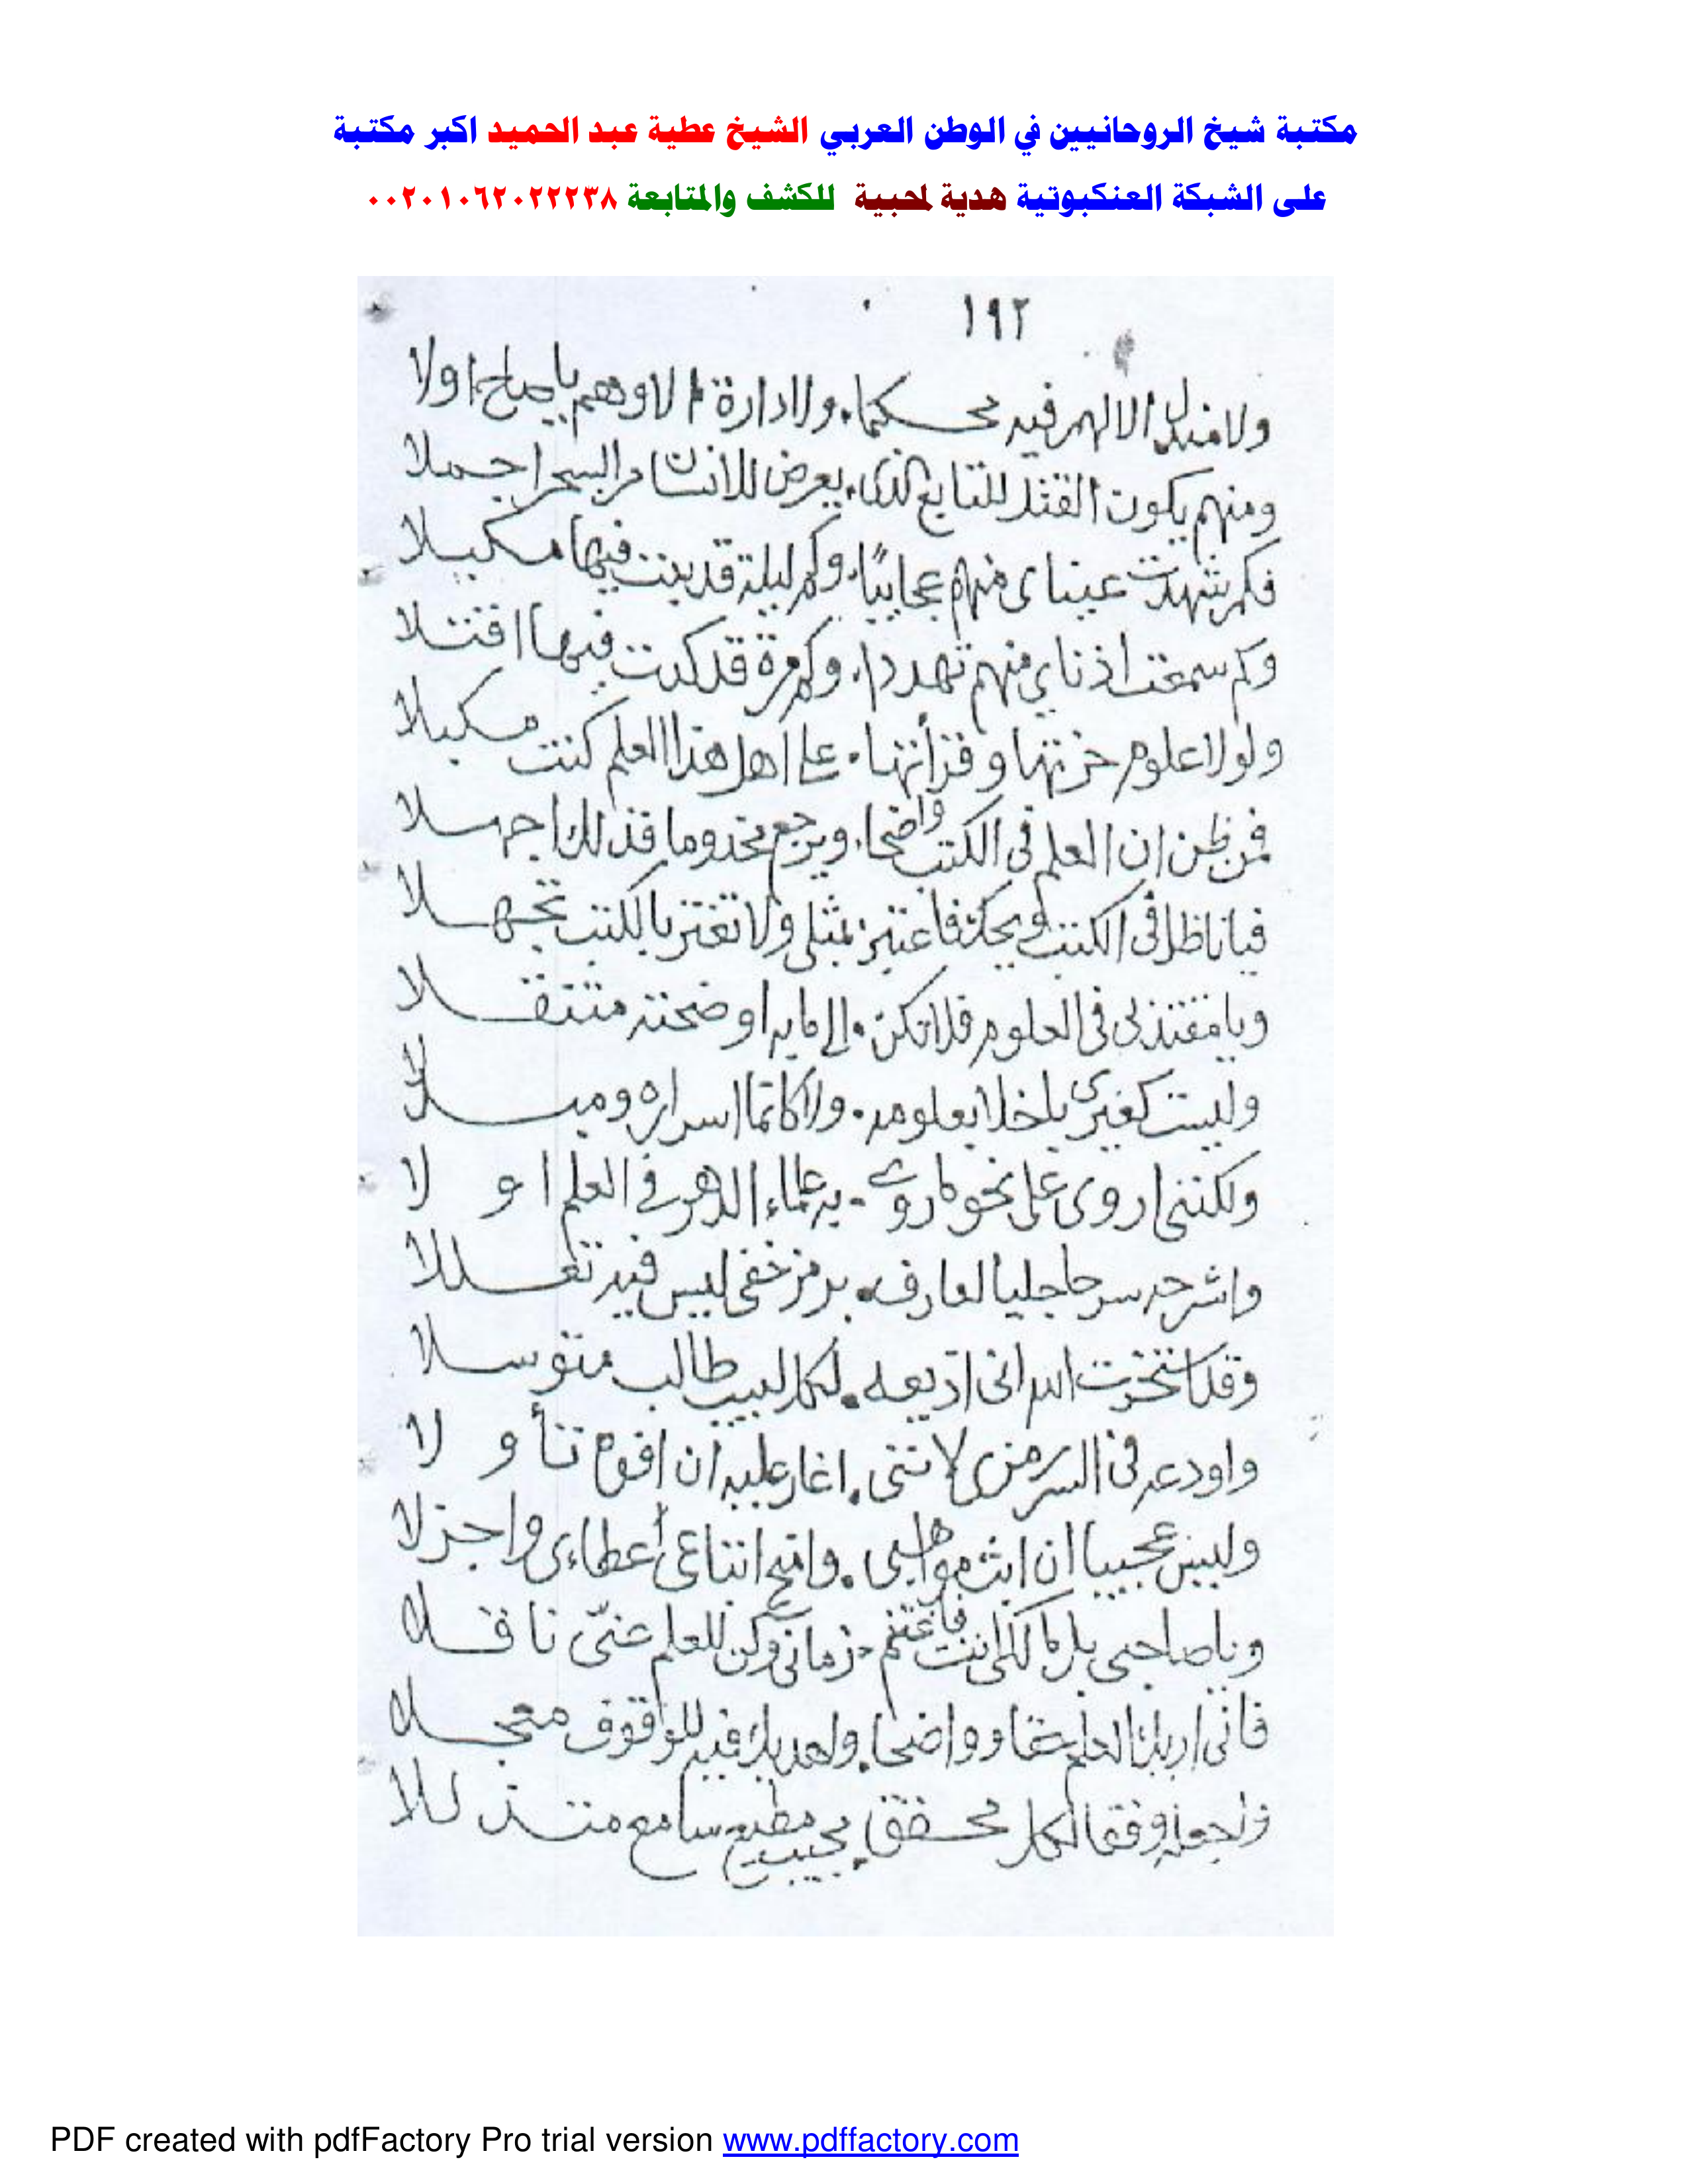 مكتبة شيخ الروحانيين في الوطن العربي الشيخ عطية عبد الحميد اكبر مكتبة
على الشبكة العنكبوتية هدية لمحبية للكشف والمتابعة ٠٠٢٠١٠٦٢٠٢٢٢٣٨
١٩٢
ولا منزل الا لهم فيه محكما، ولا دارة الا وهم يا صاح اولا
ومنهم يكون القتل للتابع الذى، يعرض للانسان من السحر اجملا
فكم شهدت عيناى منهم عجايبًا، وكم ليلة قد بنت فيها مكبلا
وكم سمعت اذناي منهم تهددا، وكم مرة قد كدت فيها اقتلا
ولولا علوم حزتها وقرأتها، على اهل هذا العلم كنت مكبلا
فمن ظن ان العلم فى الكتب واضحا، ويرجع مخدوما فذلك اجهلا
فيا ناظرا فى الكتب ويحك فاعتبر، بمثلى ولا تغتر بالكتب تجهلا
ويا مقتدى بى فى العلوم فلا تكن، الى ما به اوضحته متنقلا
وليست كغيرى باخلا بعلومه، ولا كاتما اسراره ومبلا
ولكننى اروى على نحو ما روى، به علماء الدهر فى العلم او لا
واشرحه سرحا جليا لعارف، برمز خفى ليس فيه تعللا
وقد استخرت الله انى اذيعه، لكل لبيب طالب متوسلا
واودعه فى السر رمزى لاننى، اغار عليه ان افوه تنأو لا
وليس عجيبا ان ابث مواهبى، وامنح اتباعى أعطاءى واجزلا
ويا صاحبى بل مالكى انت فاغتنم، زمانى وكن للعلم عنّى ناقلا
فانى اريك العلم حقا وواضحا، واهديك فيه للوقوف معجلا
واجعله وفقا لكل محقق، مجيب مطيع سامع متذللا
PDF created with pdfFactory Pro trial version www.pdffactory.com